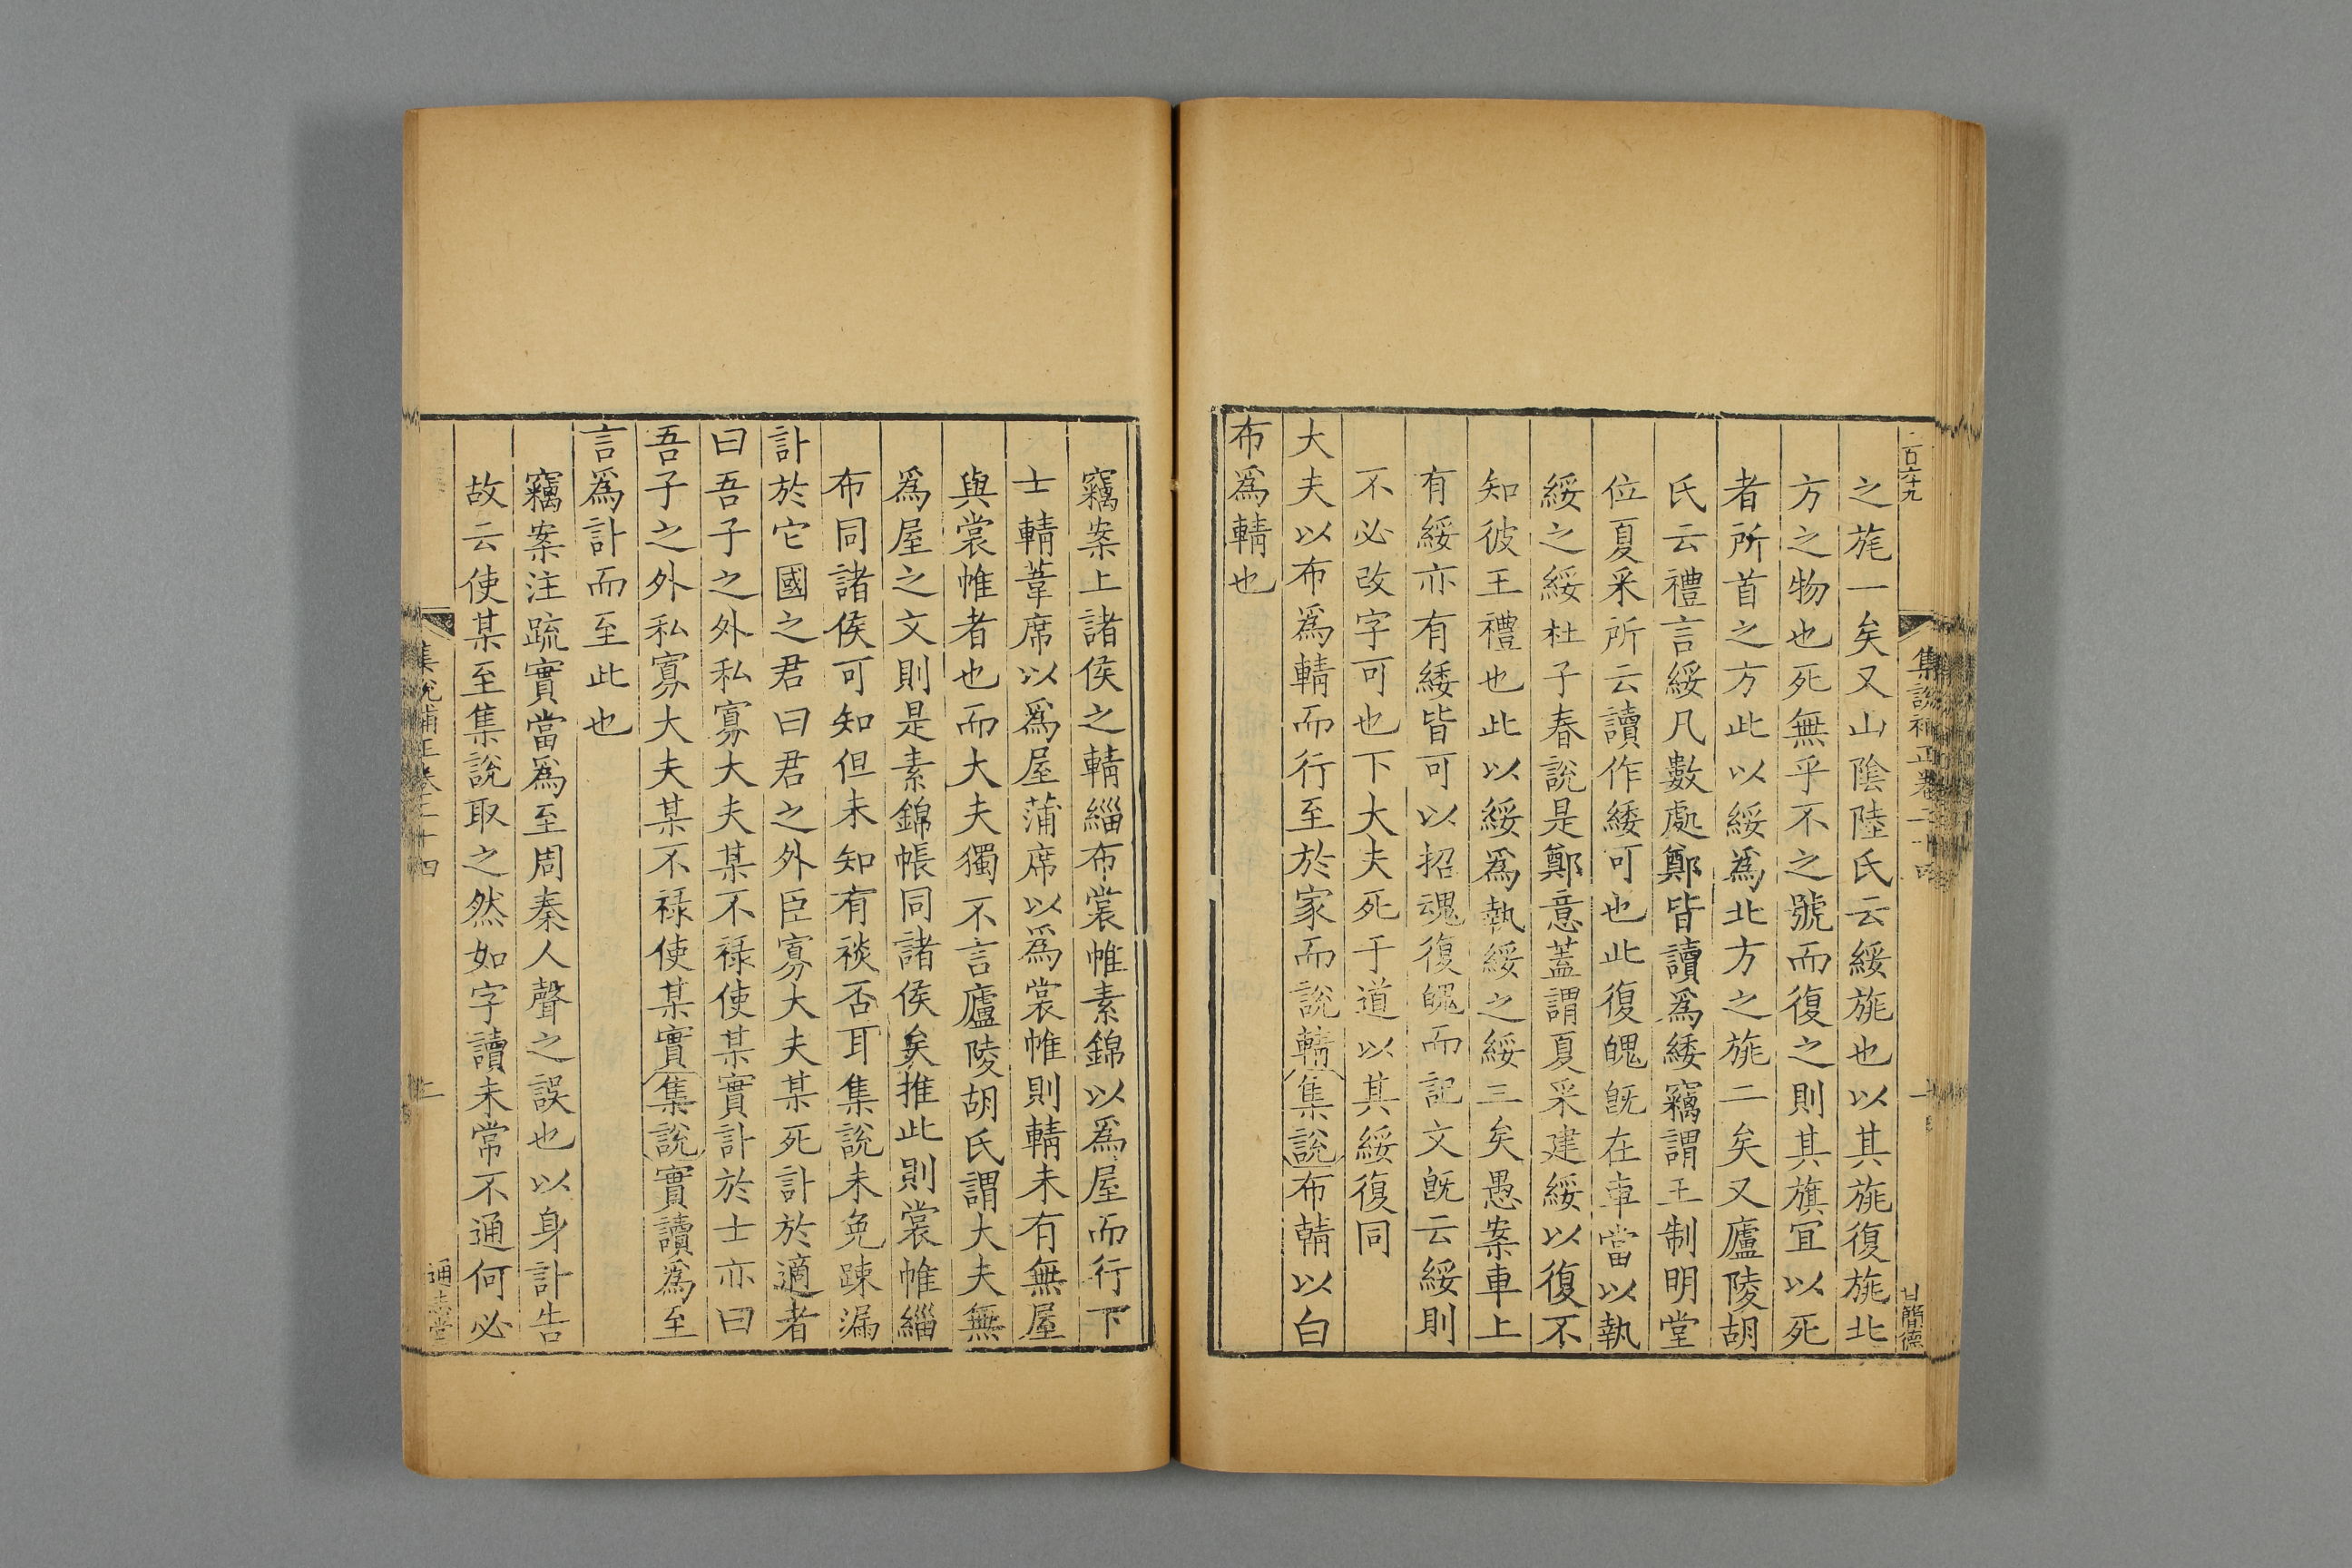 百六十九
集說補正卷二十四
一
甘簡德
之旄一矣又山陰陸氏云綏旄也以其旄復旄北
方之物也死無乎不之號而復之則其旗宜以死
者所首之方此以綏為北方之旄二矣又廬陵胡
氏云禮言綏凡數處鄭皆讀為緌竊謂王制明堂
位夏采所云讀作緌可也此復魄旣在車當以執
綏之綏杜子春說是鄭意蓋謂夏采建綏以復不
知彼王禮也此以綏為執綏之綏三矣愚案車上
有綏亦有緌皆可以招魂復魄而記文旣云綏則
不必改字可也下大夫死于道以其綏復同
大夫以布爲輤而行至於家而說輤集說布輤以白
布爲輤也
竊案上諸侯之輤緇布裳帷素錦以爲屋而行下
士輤葦席以爲屋蒲席以爲裳帷則輤未有無屋
與裳帷者也而大夫獨不言廬陵胡氏謂大夫無
爲屋之文則是素錦帳同諸侯矣推此則裳帷緇
布同諸侯可知但未知有裧否耳集說未免踈漏
訃於它國之君曰君之外臣寡大夫某死訃於適者
曰吾子之外私寡大夫某不祿使某實訃於士亦曰
吾子之外私寡大夫某不祿使某實集說實讀爲至
言爲訃而至此也
竊案注疏實當爲至周秦人聲之誤也以身訃告
故云使某至集說取之然如字讀未常不通何必
集說補正卷二十四
二
通志堂